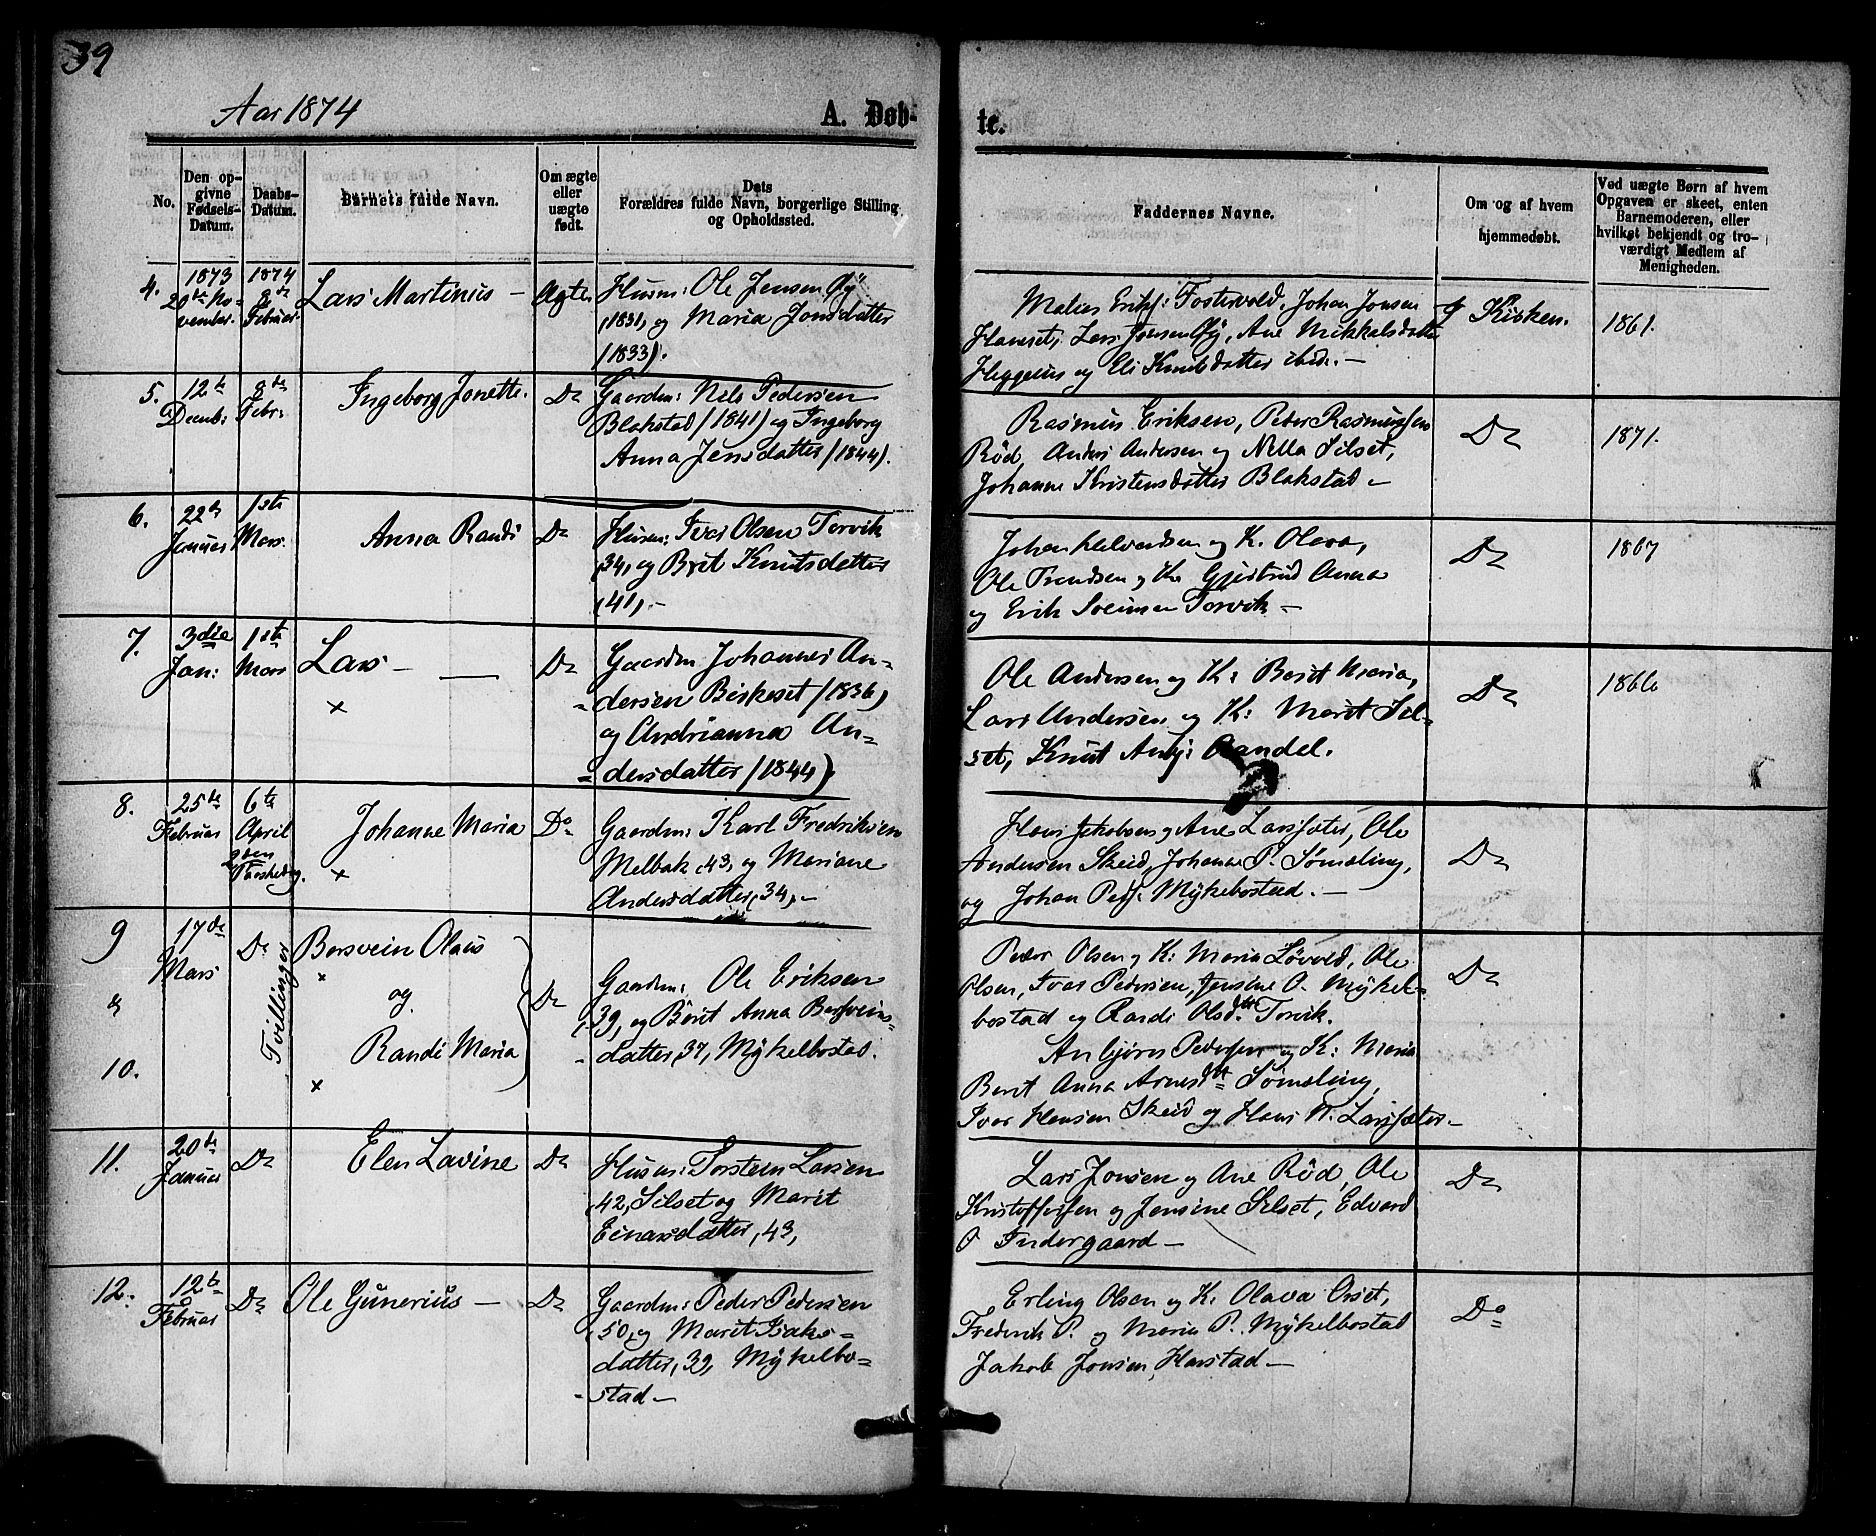 39
Aar 1874
A. Døb-
te.
No.
Den op-
givne
Fødsels-
Datum.
Daabs-
Datum.
Barnets fulde Navn.
Om ægte
eller
uægte
født.
Dats
Forældres fulde Navn, borgerlige Stilling
og Opholdssted.
Faddernes Navne.
Om og af hvem
hjemmedøbt.
Ved uægte Børn af hvem
Opgaven er skeet, enten
Barnemoderen, eller
hvilket bekjendt og tro-
værdigt Medlem af
Menigheden.
4.
1873
20de No-
vember.
1874
8de
Februar.
Lars Martinius —
Ægte
Husm: Ole Jensen Øy
(1831, og Maria Jonsdatter
(1833).
Malias Eriks: Fostervold, Johan Jonsen
Hanset, Lars Jonsen Øy, Ane Mikkalsdatter
Heggeius og Eli Knutsdatter ibid. —
Kirken.
1861.
5.
12te
Decmb:
8de
Febr:
Ingeborg Jonette.
Do
Gaardm: Nils Pedersen
Blakstad (1841) og Ingeborg
Anna Jensdatter (1844).
Rasmus Eriksen, Peder Rasmussen
Röd, Anders Andersen og Nella Silset,
Johanne Kristensdatter Blakstad —
Do
1871.
6.
22de
Januar
1ste
Mars.
Anna Randi
Do
Husm: Ivar Olsen Torvik
,34, og Brit Knutsdatter
,41, —
Johan Halvardsen og K. Olava,
Ole Trondsen og K. Gjertrud Anna
og Erik Torvik —
Do
1867
7.
3die
Jan:
1ste
Mars
Lars —
×
Do
Gaardm Johannes An-
dersen Birkeset (1836)
og Andrianna An-
dersdatter (1844)
Ole Andersen og K: Berit Maria,
Lars Andersen og K: Marit Sil-
set, Knut Anbj: Aandel.
Do
1866
8.
25de
Februar
6te
April
2den
Paaskedag.
Johanne Maria
×
Do
Gaardm: Karl Fredriksen
Melbak ,43, og Mariane
Andersdatter, 34, —
Hans Jakobsens og Ane Larssæter, Ole
Andersen Skeid, Johanne P. Sømeling,
og Johan Peds: Mykebostad. —
Do
9
og
10.
17de
Mars
Do
Tvillinger
Bersvein Olaus
×
og
Randi Maria
×
Do
Gaardm: Ole Eriksen
,39, og Börit Anna Bersveins-
datter, 37, Mykelbostad.
Peder Olsen og K: Maria Løvold, Ole
Olsen, Ivar Pedersen, Jensine O. Mykel-
bostad og Randi Olsdtr. Torvik.
Anbjørn Pedersen og K: Maria
Berit Anna Arnesdtr Sømeling,
Ivar Hansen Skeid og Hans N. Larssæter —
Do
11.
20de
Januar
Do
Elen Lavine
Do
Husm: Torsten Larsen
,42, Silset og Marit
Einarsdatter, 43,
Lars Jonsen og Ane Röd, Ole
Kristoffersen og Jensine Silset, Edvard
O Indergaard —
Do
12.
12te
Februar
Do
Ole Gunerius —
Do
Gaardm: Peder Pedersen
,50, og Marit Isaks-
datter, 39, Mykelbo-
stad —
Erling Olsen og K. Olava Orset,
Frederik P. og Maria P. Mykelbostad
Jakob Jonsen Harstad —
Do